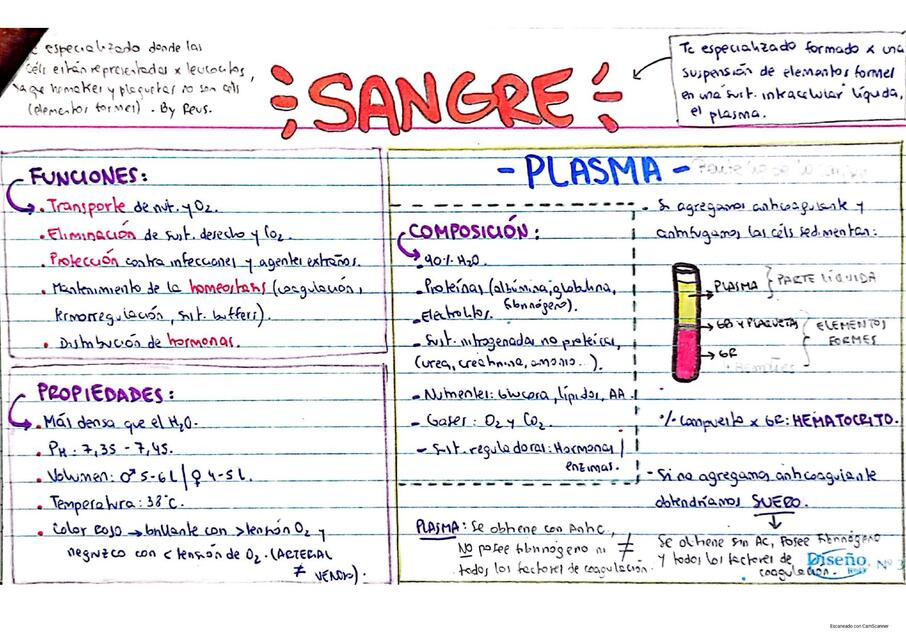 especializado donde las
céls están representadas x leucocitos,
ya que hematíes y plaquetas no son céls
(elementos formes). By Reus.
SANGRE
Te especializado formado x una
suspensión de elementos formes
en una sust. intracelular líquida,
el plasma.
FUNCIONES:
• Transporte de nut. y O2.
• Eliminación de sust. desecho y CO2.
• Protección contra infecciones y agentes extraños.
• Mantenimiento de la homeostasis (coagulación,
termorregulación, sust. buffers).
• Distribución de hormonas.
PROPIEDADES:
• Más densa que el H2O.
• PH: 7,35 - 7,45.
• Volumen: ♂ 5-6 L | ♀ 4-5 L.
• Temperatura: 38°C.
• Color Rojo → brillante con > tensión O2 y
negruzco con < tensión de O2. (ARTERIAL
≠ VENOSO).
- PLASMA -
COMPOSICIÓN:
• 90% H2O.
• Proteínas (albúmina, globulina,
fibrinógeno).
• Electrolitos.
• Sust. nitrogenadas no proteicas,
(urea, creatinina, amonio...).
• Nutrientes: Glucosa, lípidos, AA.
- Gases: O2 y CO2.
- Sust. reguladoras: Hormonas /
enzimas.
- Si agregamos anticoagulante y
centrifugamos las céls sedimentan:
PLASMA } PARTE LÍQUIDA
GB Y PLAQUETAS
GR
ELEMENTOS
FORMES
% compuesto x GR: HEMATOCRITO.
- Si no agregamos anticoagulante
obtendríamos SUERO.
PLASMA: Se obtiene con Antic,
NO posee fibrinógeno ni
todos los factores de coagulación.
≠
Se obtiene sin AC, posee fibrinógeno
y todos los factores de
coagulación.
Diseño
Nº 3
Escaneado con CamScanner